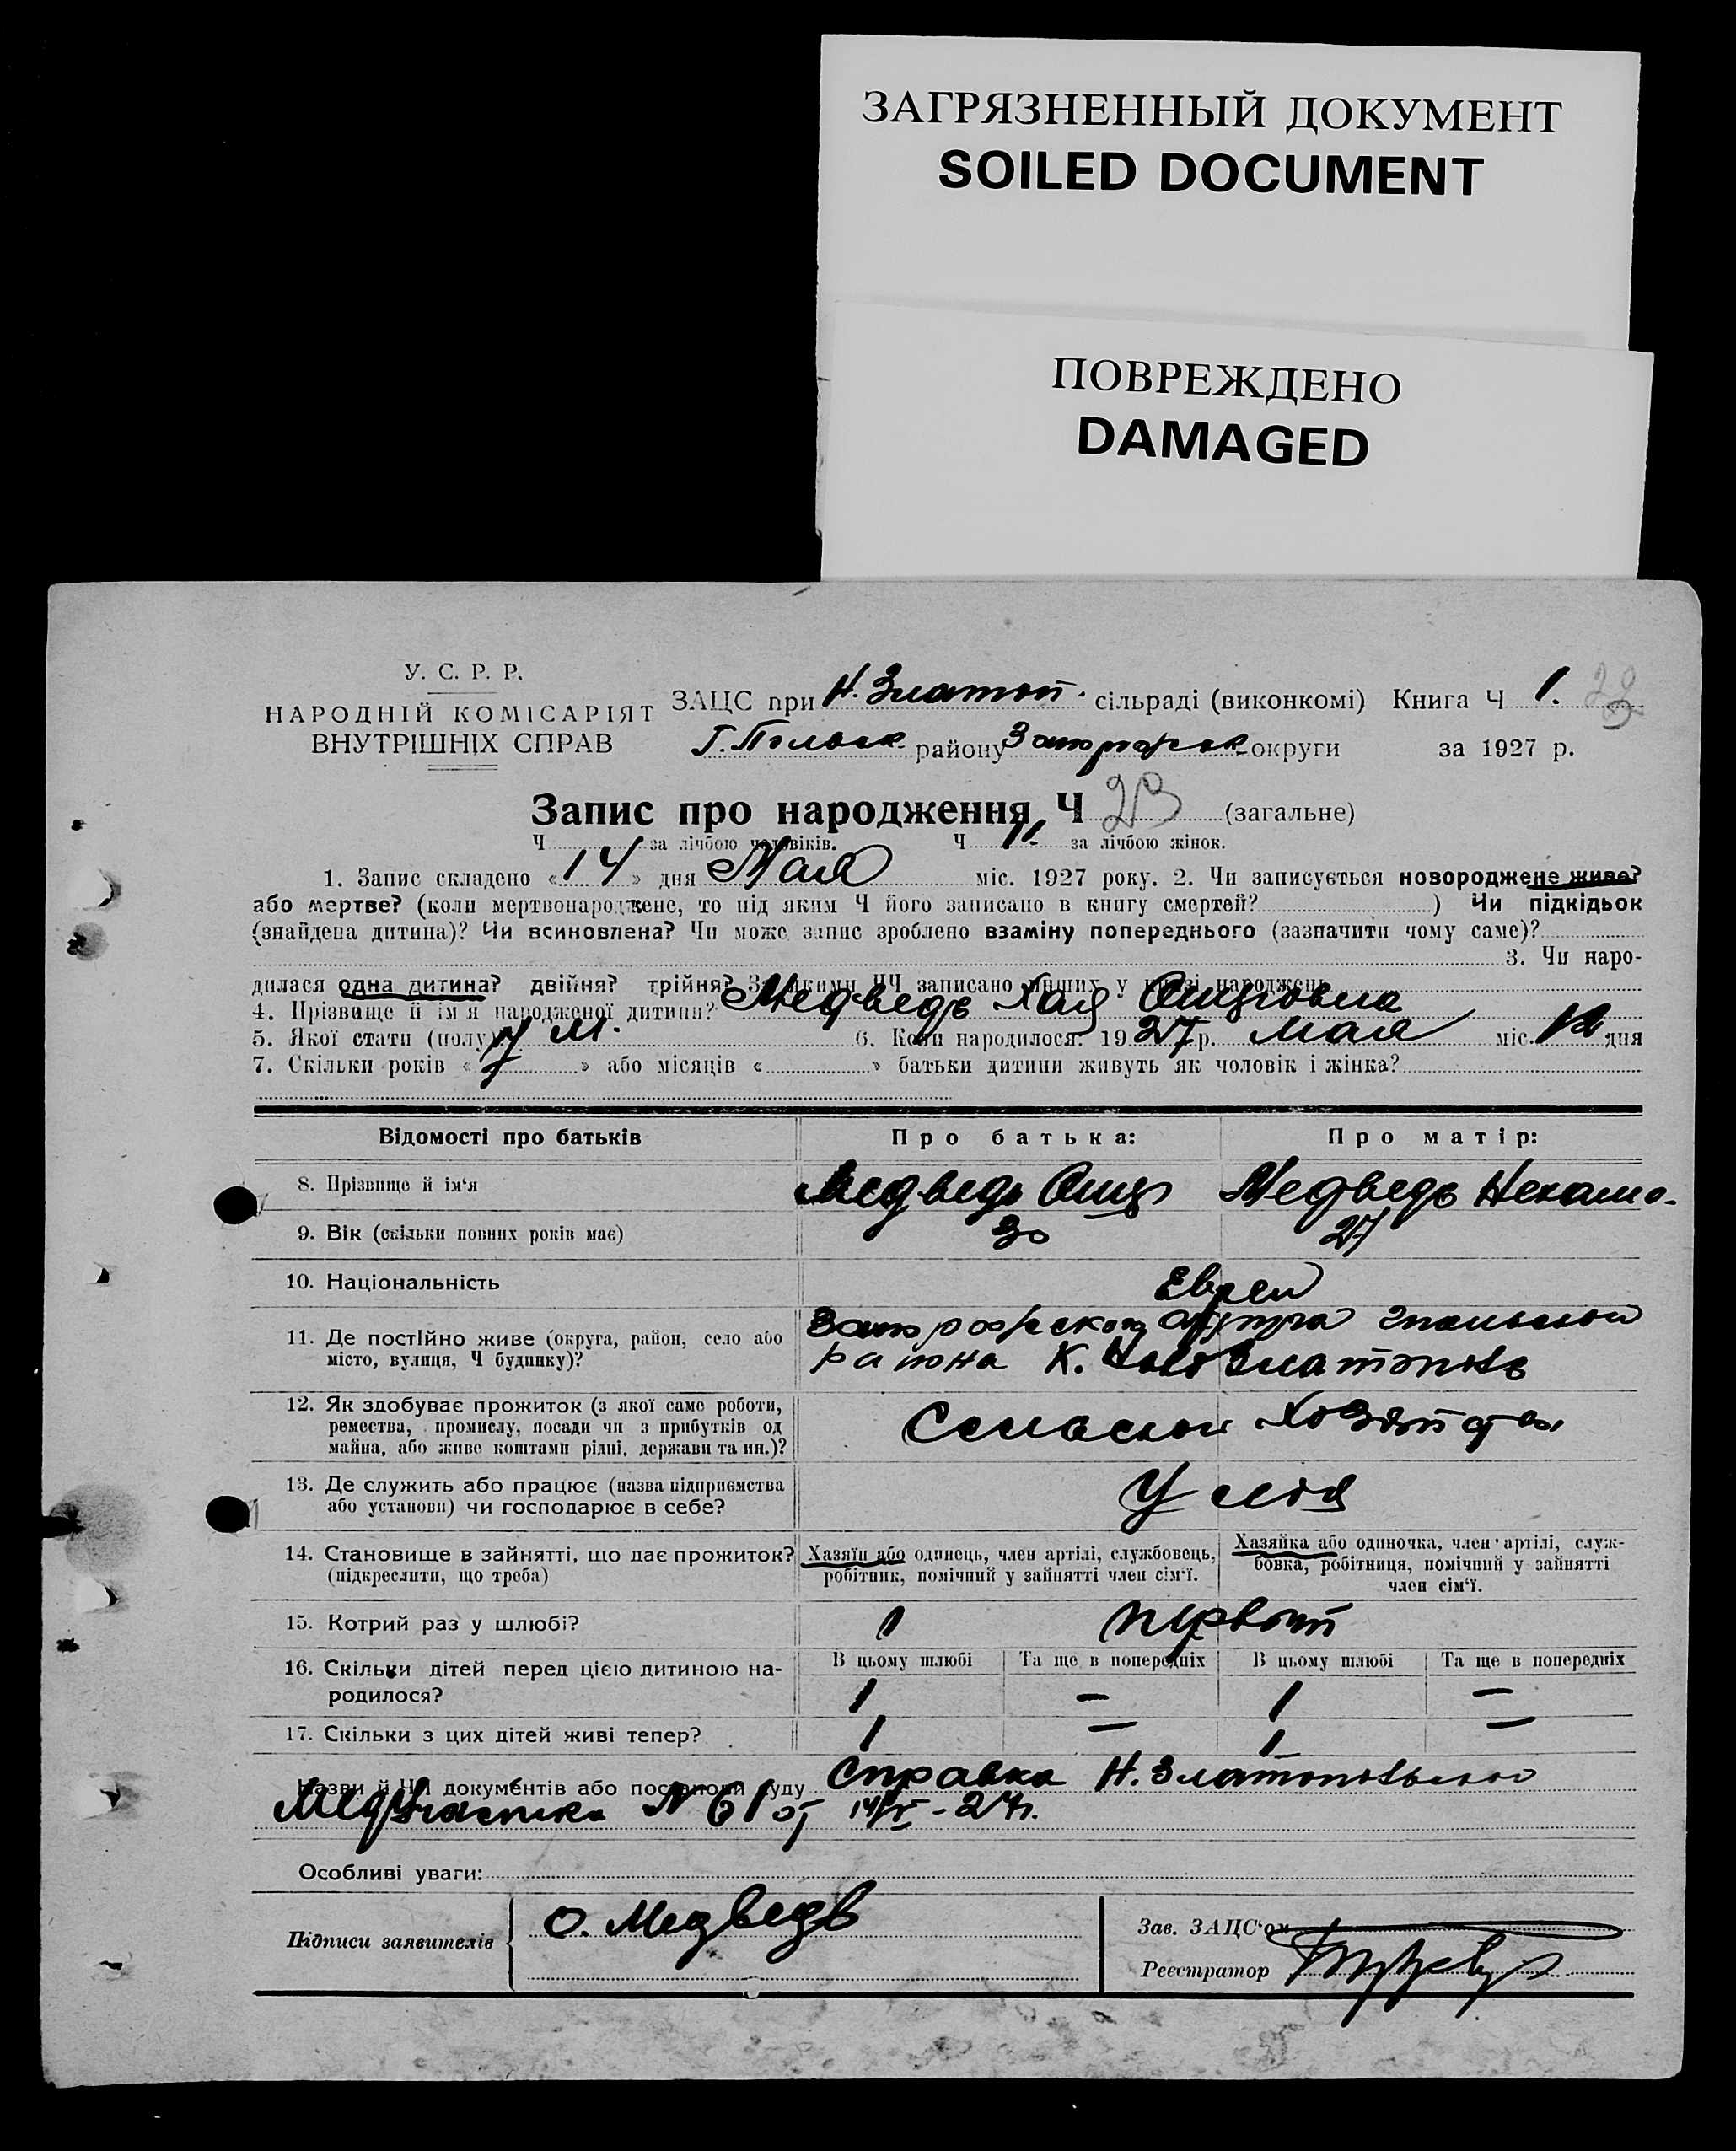 ЗАГРЯЗНЕННЫЙ ДОКУМЕНТ
SOILED DOCUMENT
ПОВРЕЖДЕНО
DAMAGED
У. С. Р. Р.
НАРОДНІЙ КОМІСАРІЯТ
ВНУТРІШНІХ СПРАВ
ЗАЦС при Н. Златоп. сільраді (виконкомі) Книга Ч 1.
Г. Польск- району Запорожск- округи за 1927 р.
Запис про народження Ч 23 (загальне)
Ч за лічбою чоловіків. Ч 11. за лічбою жінок.
1. Запис складено «14» дня Мая міс. 1927 року. 2. Чи записується новороджене живе?
або мертве? (коли мертвонароджене, то під яким Ч його записано в книгу смертей?) Чи підкідьок
(знайдена дитина)? Чи всиновлена? Чи може запис зроблено взаміну попереднього (зазначити чому саме)?
3. Чи наро-
дилася одна дитина? двійня? трійня? За якими ЧЧ записано инших у книзі народжень
4. Прізвище й ім'я народженої дитини? Медведь Хая
5. Якої стати (полу) 6. Коли народилося: 1927 р. мая міс. 12 дня
7. Скільки років « » або місяців « » батьки дитини живуть як чоловік і жінка?
Відомості про батьків Про батька: Про матір:
8. Прізвище й ім'я Медведь Медведь Нехама-
9. Вік (скільки повних років має) 30 27
10. Національність Евреи
11. Де постійно живе (округа, район, село або
місто, вулиця, Ч будинку)?
района К. Ново Златополь
12. Як здобуває прожиток (з якої саме роботи,
ремества, промислу, посади чи з прибутків од
майна, або живе коштами рідні, держави та ин.)?
13. Де служить або працює (назва підприємства
або установи) чи господарює в себе? У себя
14. Становище в зайнятті, що дає прожиток?
(підкреслити, що треба)
Хазяїн або одинець, член артілі, службовець,
робітник, помічний у зайнятті член сім'ї.
Хазяйка або одиночка, член артілі, служ-
бовка, робітниця, помічний у зайнятті
член сім'ї.
15. Котрий раз у шлюбі? 1 первый
16. Скільки дітей перед цією дитиною на-
родилося?
В цьому шлюбі Та ще в попередніх В цьому шлюбі Та ще в попередніх
1 — 1 —
17. Скільки з цих дітей живі тепер? 1 — 1 —
Назви й ЧЧ документів або постанови суду Справка Н. Златопольской
МедУчастка N 61 от 14/V-27 г.
Особливі уваги:
Підписи заявителів О. Медведь
Зав. ЗАЦС'ом
Реєстратор